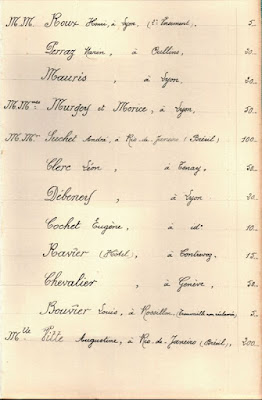 M.M. Roux Henri, à Lyon, (2e Versement), 5..
Perraz , à Oullins, 20..
Mauris , à Lyon, 20..
M.Mmes Murgoy et Morice, à Lyon, 50..
M.Mrs Suchet André, à Rio-de-Janeiro (Brésil) 100..
Clerc Léon , à Tenay, 50..
Débeneif , à Lyon 20..
Cochet Eugène, à id° 10..
Ravier (Hôtel), à 15..
Chevalier , à Genève, 50..
Bouvier Louis, à Rossillon, 5..
Mlle Pitte Augustine, à Rio-de-Janeiro (Brésil), 200..